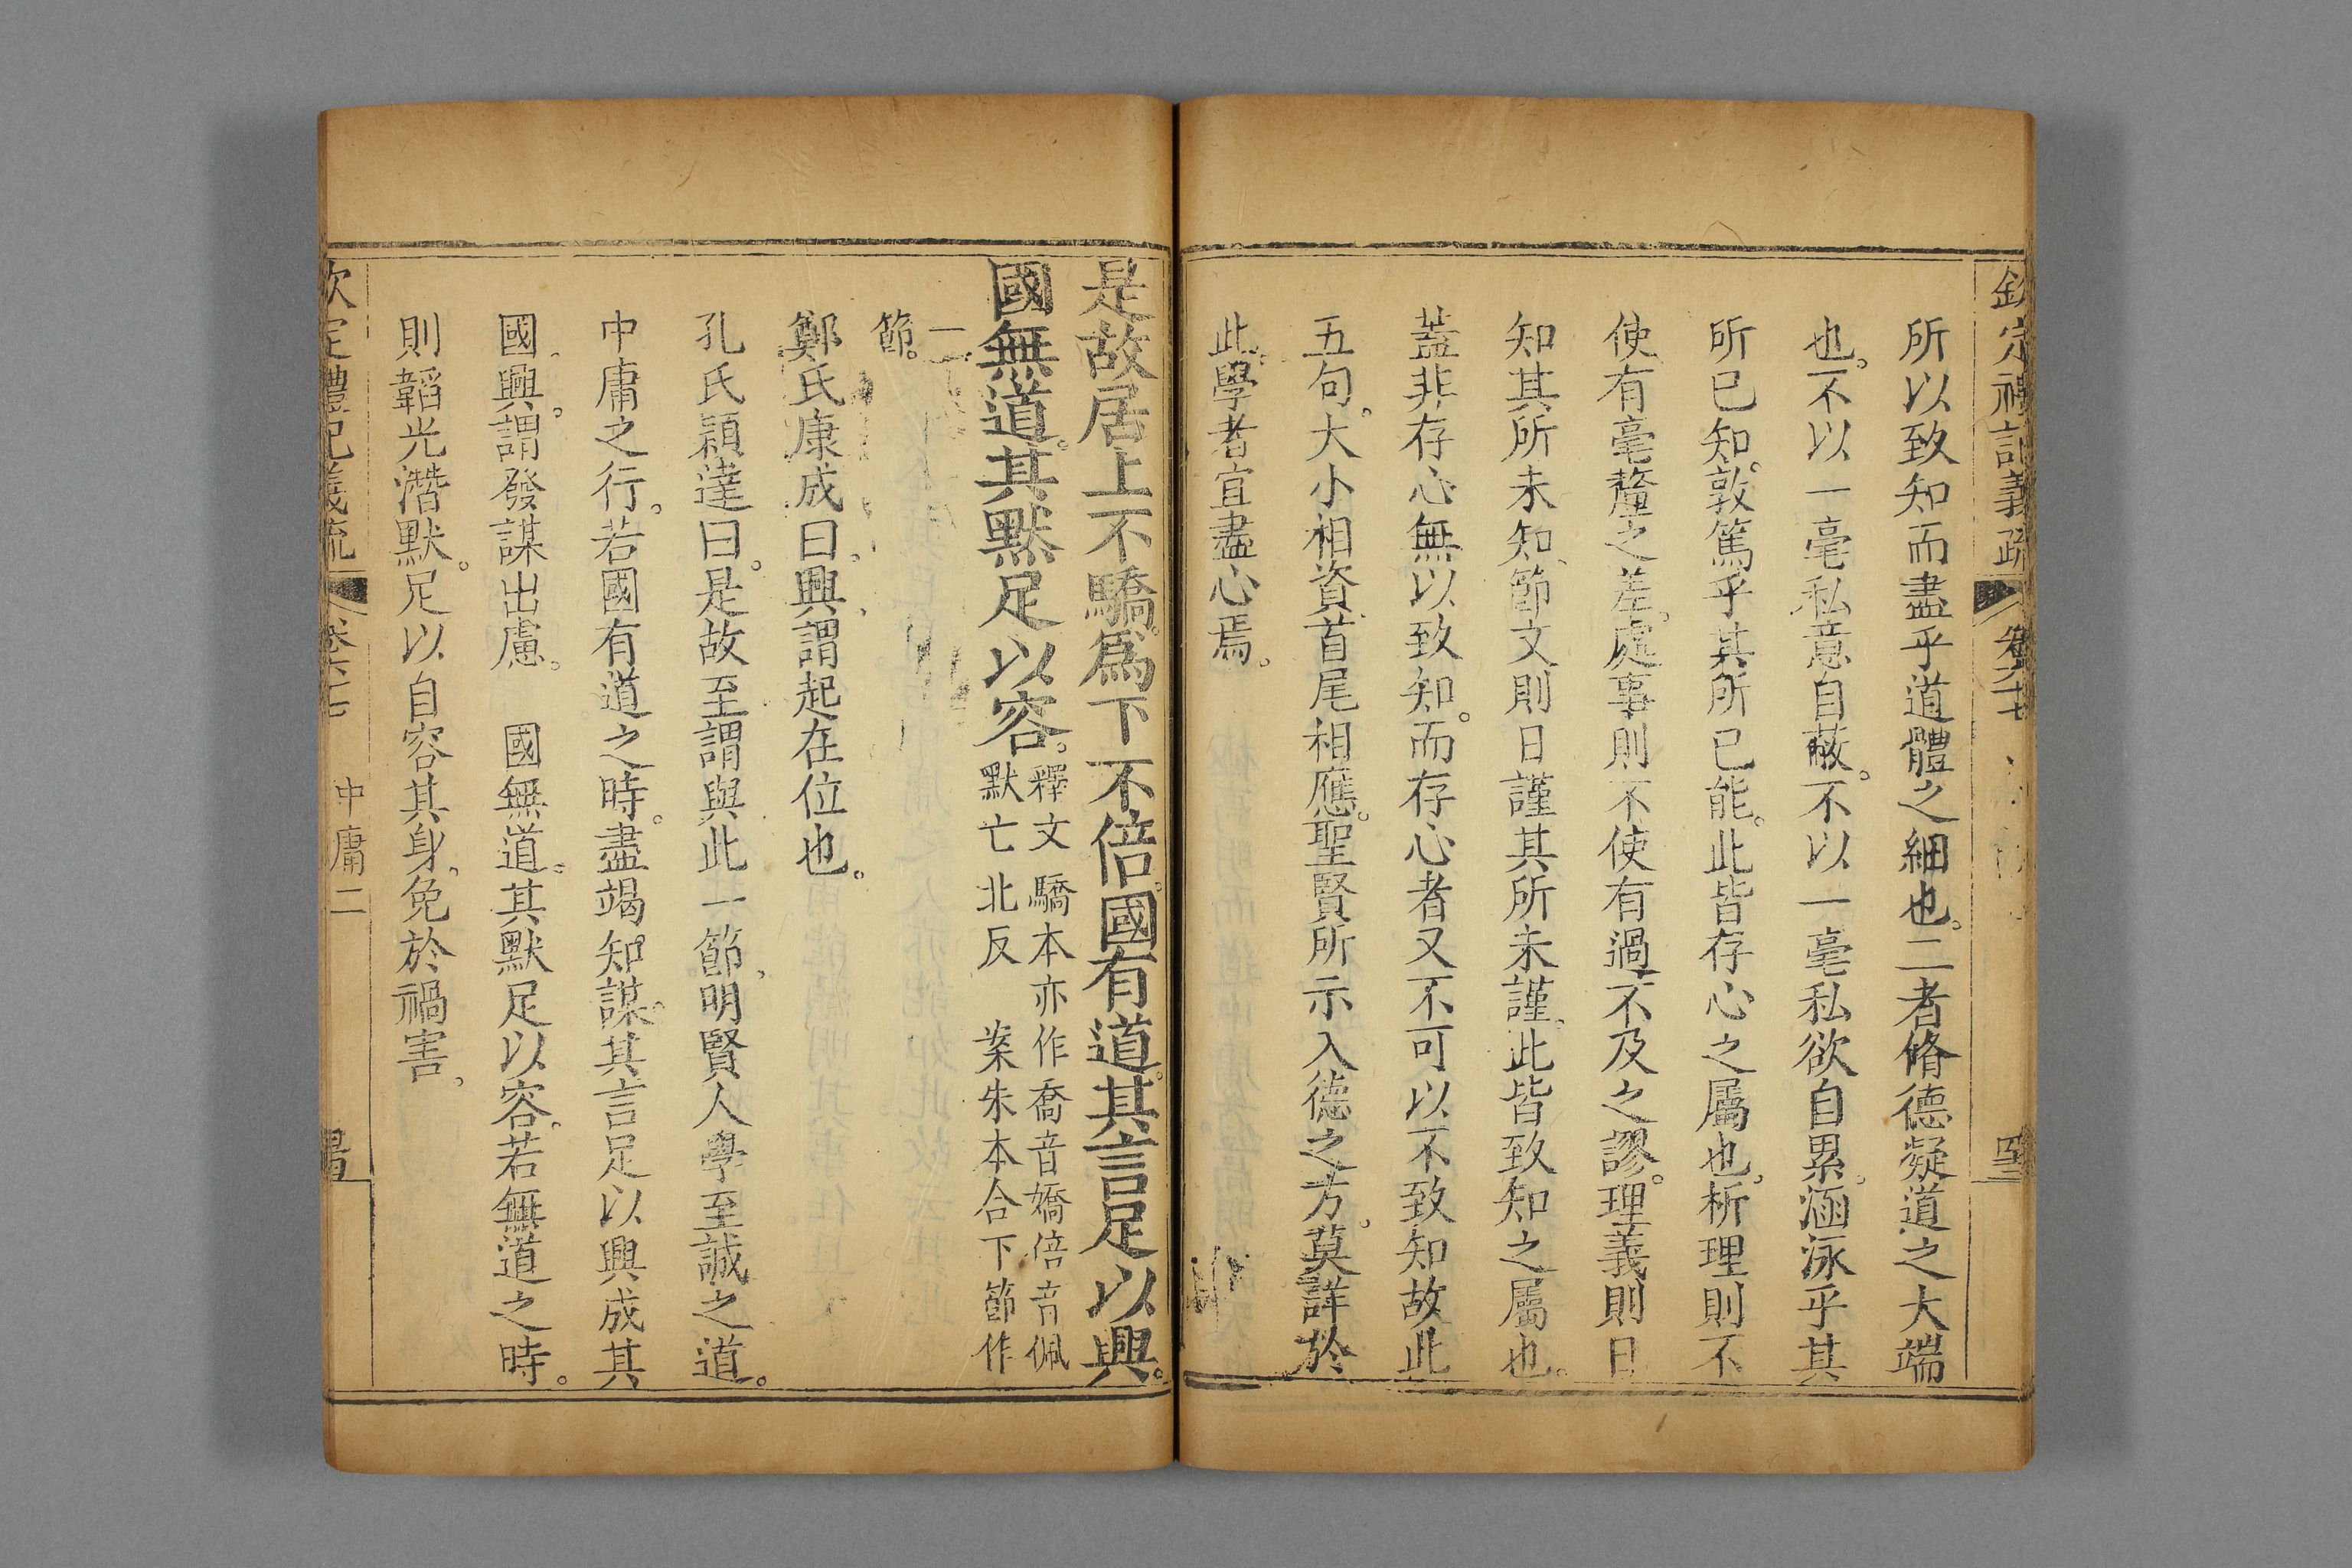 欽定禮記義疏 卷六十七 四十三
所以致知而盡乎道體之細也。二者脩德凝道之大端
也。不以一毫私意自蔽。不以一毫私欲自累。涵泳乎其
所已知。敦篤乎其所已能。此皆存心之屬也。析理則不
使有毫釐之差。處事則不使有過不及之謬。理義則日
知其所未知、節文則日謹其所未謹。此皆致知之屬也。
蓋非存心無以致知。而存心者又不可以不致知故此
五句。大小相資、首尾相應。聖賢所示入德之方。莫詳於
此。學者宜盡心焉。
是故居上不驕。爲下不倍。國有道。其言足以興。
國無道。其默足以容。
釋文驕本亦作喬音嬌倍音佩
默亡北反 案朱本合下節作
一
節。
鄭氏康成曰。興、謂起在位也。
孔氏穎達曰。是故至謂與此一節、明賢人學至誠之道。
中庸之行。若國有道之時。盡竭知謀。其言足以興成其
國。興、謂發謀出慮。 國無道。其默足以容。若無道之時。
則韜光潛默。足以自容其身、免於禍害、
欽定禮記義疏 卷六十七 中庸二